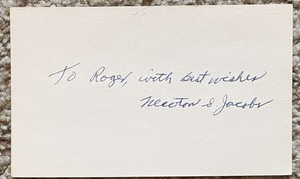 To Roger, with best wishes
Newton S Jacobs